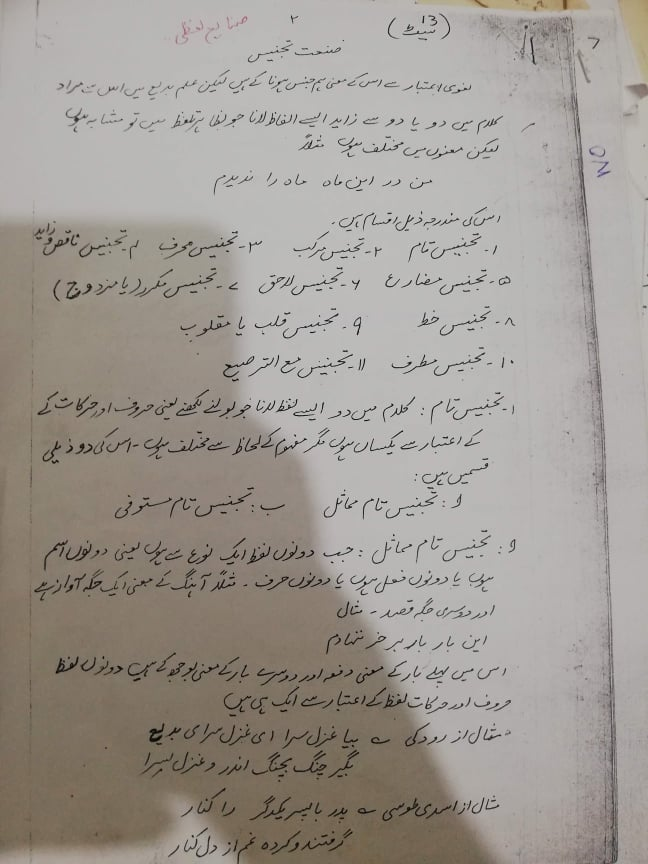 صنایع لفظی
۲
13
(نیٹ)
ON
صنعت تجنیس
لغوی اعتبار سے اس کے معنی ہم جنس ہونا کے ہیں لیکن علم بدیع میں اس سے مراد
کلام میں دو یا دو سے زاید ایسے الفاظ لانا جو بظاہر تلفظ میں تو مشابہ ہوں
لیکن معنوں میں مختلف ہوں مثلاً
من در این ماه ماه را ندیدم
اس کی مندرجہ ذیل اقسام ہیں۔
۱۔ تجنیس تام ۲۔ تجنیس مرکب ۳۔ تجنیس محرف ۴۔ تجنیس ناقص و زاید
۵۔ تجنیس مضارع ۶۔ تجنیس لاحق ۷۔ تجنیس مکرر (یا مزدوج)
۸۔ تجنیس خط ۹۔ تجنیس قلب یا مقلوب
۱۰۔ تجنیس مطرف ۱۱۔ تجنیس مع الترصیع
۱۔ تجنیس تام: کلام میں دو ایسے لفظ لانا جو بولنے لکھنے یعنی حروف اور حرکات کے
کے اعتبار سے یکساں ہوں مگر مفہوم کے لحاظ سے مختلف ہوں۔ اس کی دو ذیلی
قسمیں ہیں:
ا: تجنیس تام مماثل ب: تجنیس تام مستوفی
ا: تجنیس تام مماثل: جب دونوں لفظ ایک نوع سے ہوں یعنی دونوں اسم
ہوں یا دونوں فعل ہوں یا دونوں حرف۔ مثلاً آہنگ کے معنی ایک جگہ آواز ہے
اور دوسری جگہ قصد۔ مثال
این بار بار بر خر ننهادم
اس میں پہلے بار کے معنی دفعہ اور دوسرے بار کے معنی بوجھ کے ہیں دونوں لفظ
حروف اور حرکات لفظ کے اعتبار سے ایک ہی ہیں
مثال از رودکی ؎ بیا غزل سرا ای غزل سرای بدیع
بگیر چنگ بچنگ اندر و غزل بسرا
مثال از اسدی طوسی ؎ پدر با پسر یکدگر را کنار
گرفتند و کرده غم از دل کنار